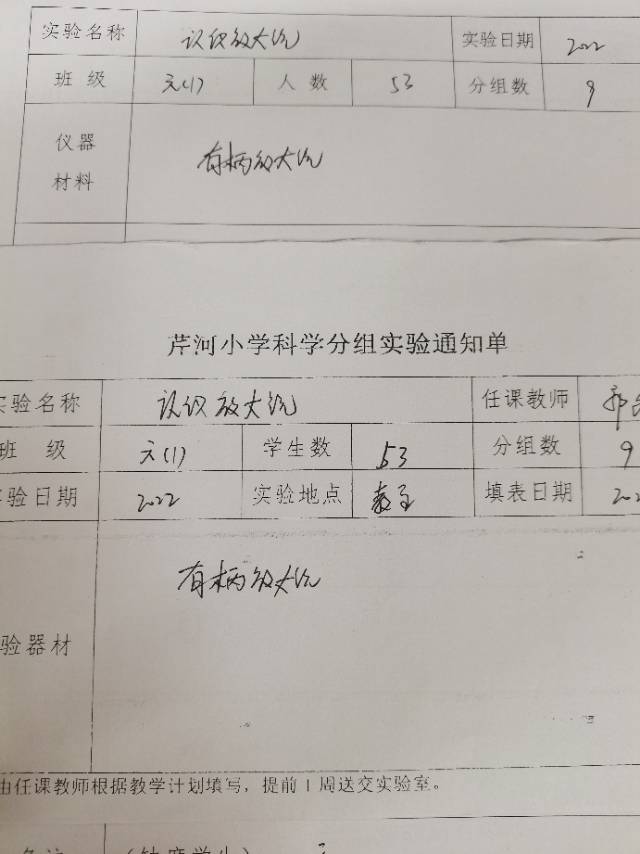 实验名称 认识放大镜 实验日期 2022
班 级 六(1) 人 数 53 分组数 9
仪器 有柄放大镜
材料
芹河小学科学分组实验通知单
实验名称 认识放大镜 任课教师 郭
班 级 六(1) 学生数 53 分组数 9
实验日期 2022 实验地点 教室 填表日期 202
验器材 有柄放大镜
由任课教师根据教学计划填写，提前1周送交实验室。